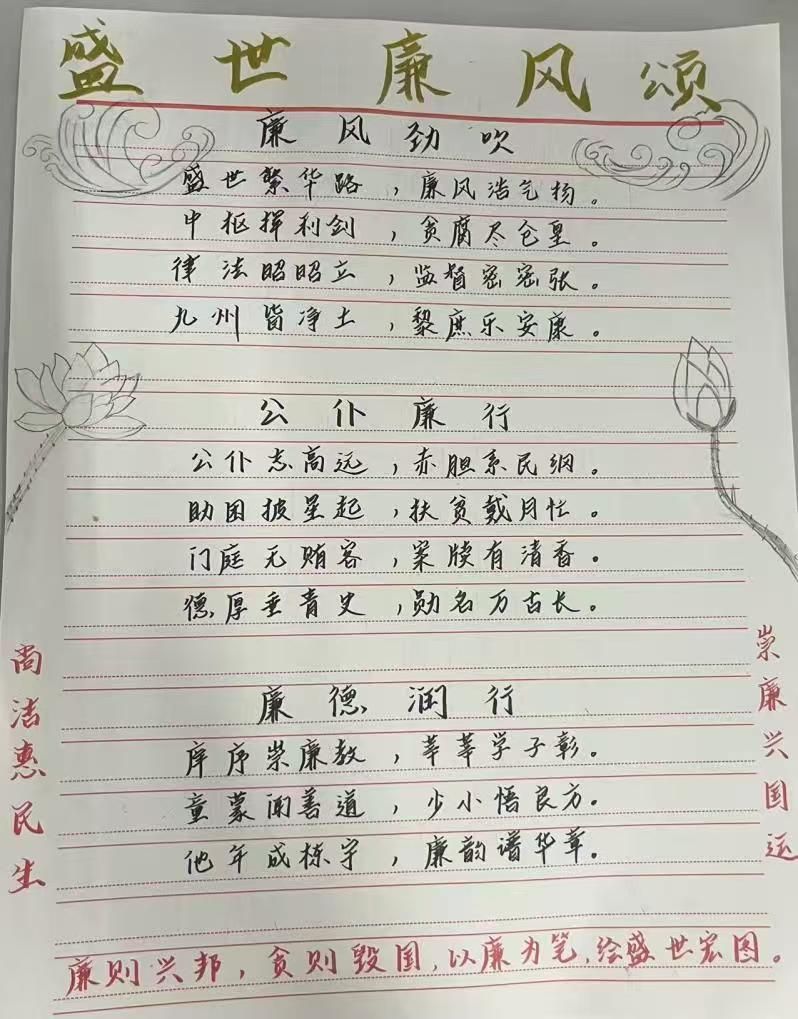 盛世廉风颂
廉风劲吹
盛世繁华路，廉风浩气扬。
中枢挥利剑，贪腐尽仓皇。
律法昭昭立，监督密密张。
九州皆净土，黎庶乐安康。
公仆廉行
公仆志高远，赤胆系民纲。
助困披星起，扶贫戴月忙。
门庭无贿客，案牍有清香。
德厚垂青史，勋名万古长。
廉德润行
庠序崇廉教，莘莘学子彰。
童蒙闻善道，少小悟良方。
他年成栋宇，廉韵谱华章。
尚洁惠民生
崇廉兴国运
廉则兴邦，贪则毁国，以廉为笔，绘盛世宏图。